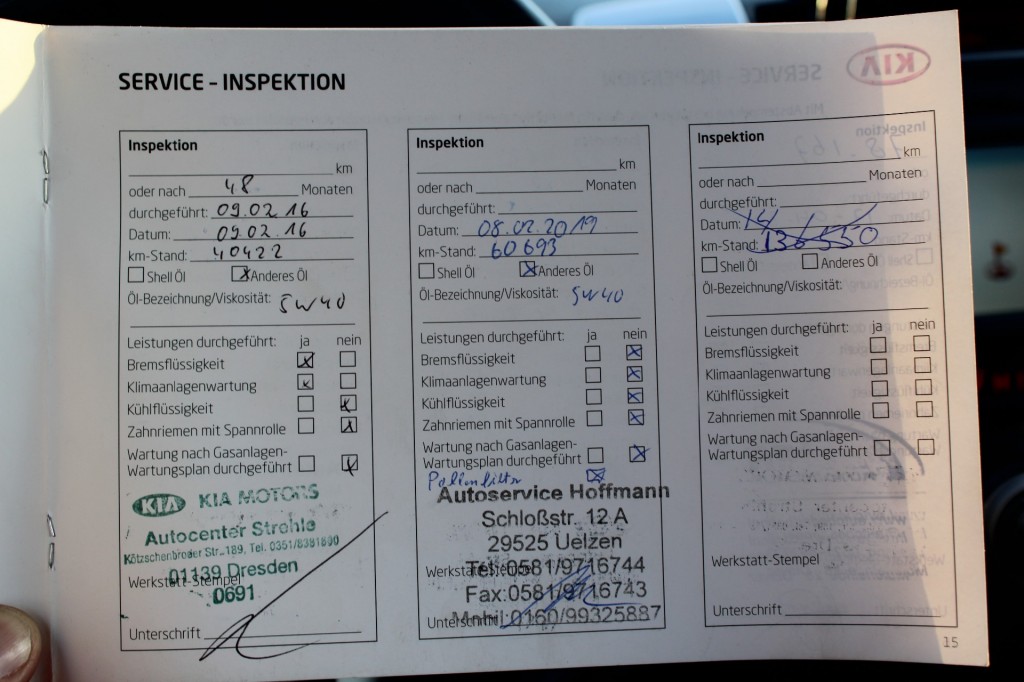 SERVICE – INSPEKTION
KIA
Inspektion
km
oder nach 48 Monaten
durchgeführt: 09.02.16
Datum: 09.02.16
km-Stand: 40422
Shell Öl Anderes Öl
Öl-Bezeichnung/Viskosität: 5W40
Leistungen durchgeführt: ja nein
Bremsflüssigkeit
Klimaanlagenwartung
Kühlflüssigkeit
Zahnriemen mit Spannrolle
Wartung nach Gasanlagen-
Wartungsplan durchgeführt
KIA KIA MOTORS
Autocenter Strehle
Kötzschenbroder Str. 189, Tel. 0351/8381890
01139 Dresden
Werkstatt-Stempel
0691
Unterschrift
Inspektion
km
oder nach Monaten
durchgeführt:
Datum: 08.02.2019
km-Stand: 60693
Shell Öl Anderes Öl
Öl-Bezeichnung/Viskosität: 5W40
Leistungen durchgeführt: ja nein
Bremsflüssigkeit
Klimaanlagenwartung
Kühlflüssigkeit
Zahnriemen mit Spannrolle
Wartung nach Gasanlagen-
Wartungsplan durchgeführt
Pollenfilter
Autoservice Hoffmann
Schloßstr. 12 A
29525 Uelzen
Werkstatt-Stempel
Tel.:0581/9716744
Fax:0581/9716743
Mobil:0160/99325887
Unterschrift
Inspektion
km
oder nach Monaten
durchgeführt:
Datum: 14
km-Stand: 136550
Shell Öl Anderes Öl
Öl-Bezeichnung/Viskosität:
Leistungen durchgeführt: ja nein
Bremsflüssigkeit
Klimaanlagenwartung
Kühlflüssigkeit
Zahnriemen mit Spannrolle
Wartung nach Gasanlagen-
Wartungsplan durchgeführt
Werkstatt-Stempel
Unterschrift
15